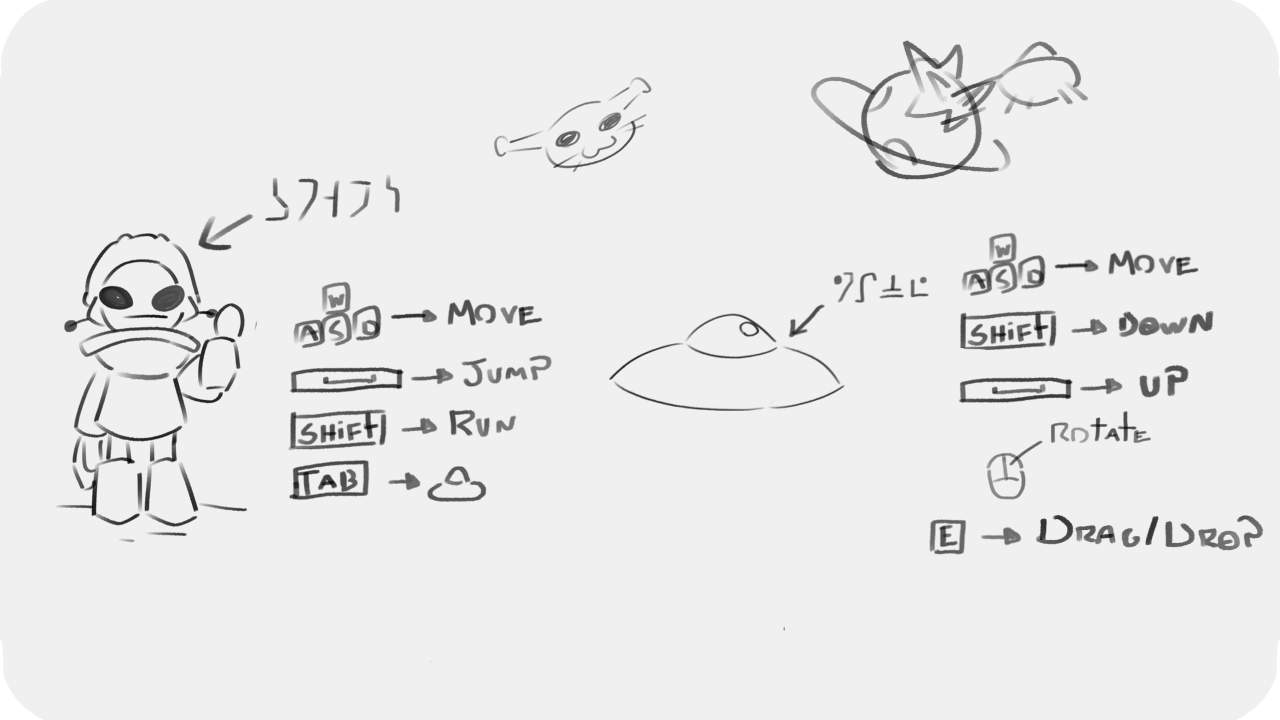 W
A S D → MOVE
→ JUMP
SHIFT → RUN
TAB →
W
A S D → MOVE
SHIFT → DOWN
→ UP
ROTATE
E → DRAG/DROP